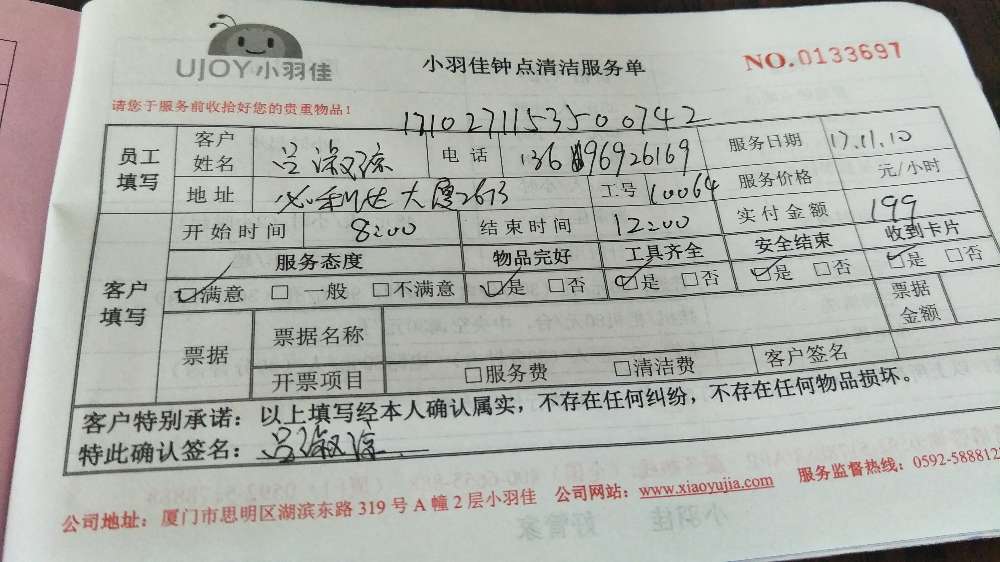 UJOY小羽佳
小羽佳钟点清洁服务单
NO.0133697
请您于服务前收拾好您的贵重物品！
1710271153500742
员工填写 客户姓名 吕淑 电话 服务日期 17.11.10
地址 必利达大厦26 工号 10064 服务价格 元/小时
开始时间 8:00 结束时间 12:00 实付金额 199
客户填写 服务态度 物品完好 工具齐全 安全结束 收到卡片
☑满意 □一般 □不满意 ☑是 □否 ☑是 □否 ☑是 □否 ☑是 □否
票据 票据名称 票据金额
开票项目 □服务费 □清洁费 客户签名
客户特别承诺：以上填写经本人确认属实，不存在任何纠纷，不存在任何物品损坏。
特此确认签名：吕淑
公司地址：厦门市思明区湖滨东路 319 号 A 幢 2 层小羽佳 公司网站：www.xiaoyujia.com 服务监督热线：0592-588812